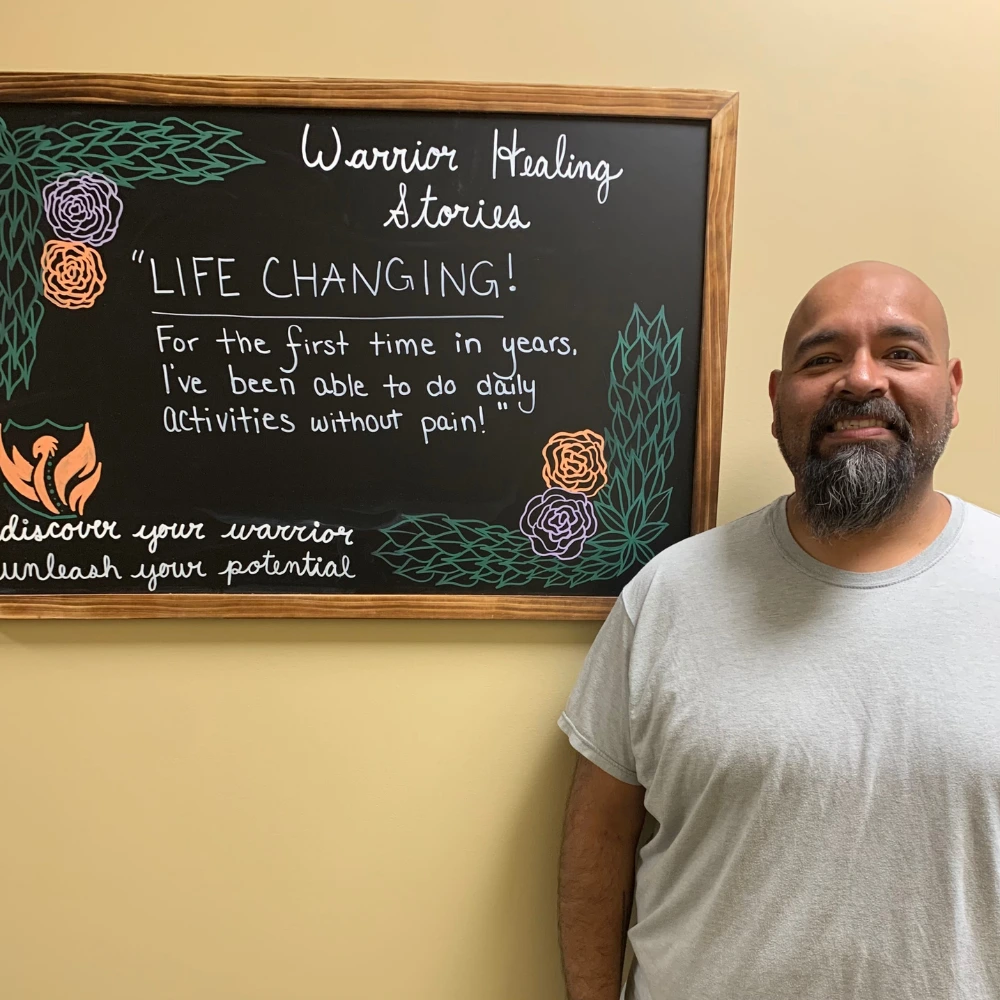 Warrior Healing
Stories
"LIFE CHANGING!
For the first time in years.
I've been able to do daily
activities without pain!"
discover your warrior
unleash your potential